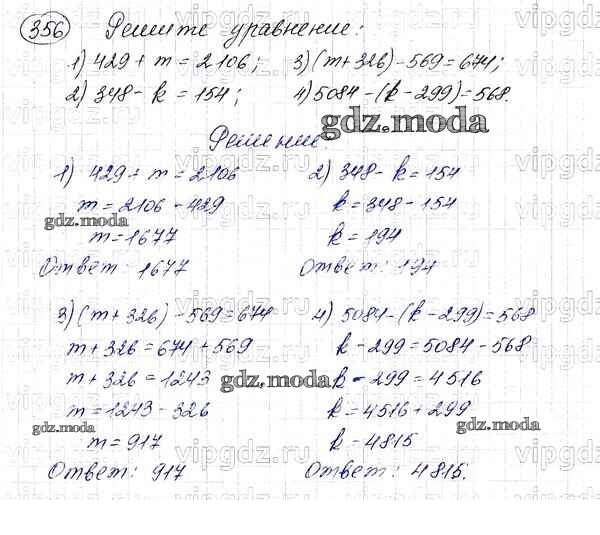 356 Решите уравнение:
1) 429 + m = 2106; 3) (m + 326) - 569 = 674;
2) 348 - k = 154; 4) 5084 - (k - 299) = 568.
gdz.moda
Решение:
1) 429 + m = 2106
m = 2106 - 429
gdz.moda
m = 1677
Ответ: 1677
2) 348 - k = 154
k = 348 - 154
k = 194
Ответ: 194
3) (m + 326) - 569 = 674
m + 326 = 674 + 569
m + 326 = 1243
gdz.moda
m = 1243 - 326
gdz.moda
m = 917
Ответ: 917
4) 5084 - (k - 299) = 568
k - 299 = 5084 - 568
k - 299 = 4516
k = 4516 + 299
gdz.moda
k = 4815
Ответ: 4815.
vipgdz.ru